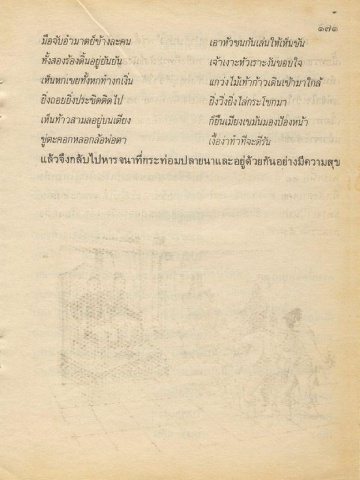 ๑๙๑
มือจับอำมาตย์ข้างละคน เอาหัวชนกันเล่นให้เห็นขัน
ทั้งสองร้องดิ้นอยู่ยันยัน เจ้าเงาะหัวเราะงันชอบใจ
เห็นหกเขยทั้งหกทำงกเงิ่น แกว่งไม้เท้าก้าวเดินเข้ามาใกล้
ยิ่งถอยยิ่งประชิดติดไป ยิ่งวิ่งยิ่งไล่กระโชกมา
เห็นท้าวสามลอยู่บนเตียง ก็ยืนเมียงเขม้นมองป้องหน้า
ขู่ตะคอกหลอกล้อพ่อตา เงื้อง่าทำทีจะตีรัน
แล้วจึงกลับไปหารจนาที่กระท่อมปลายนาและอยู่ด้วยกันอย่างมีความสุข